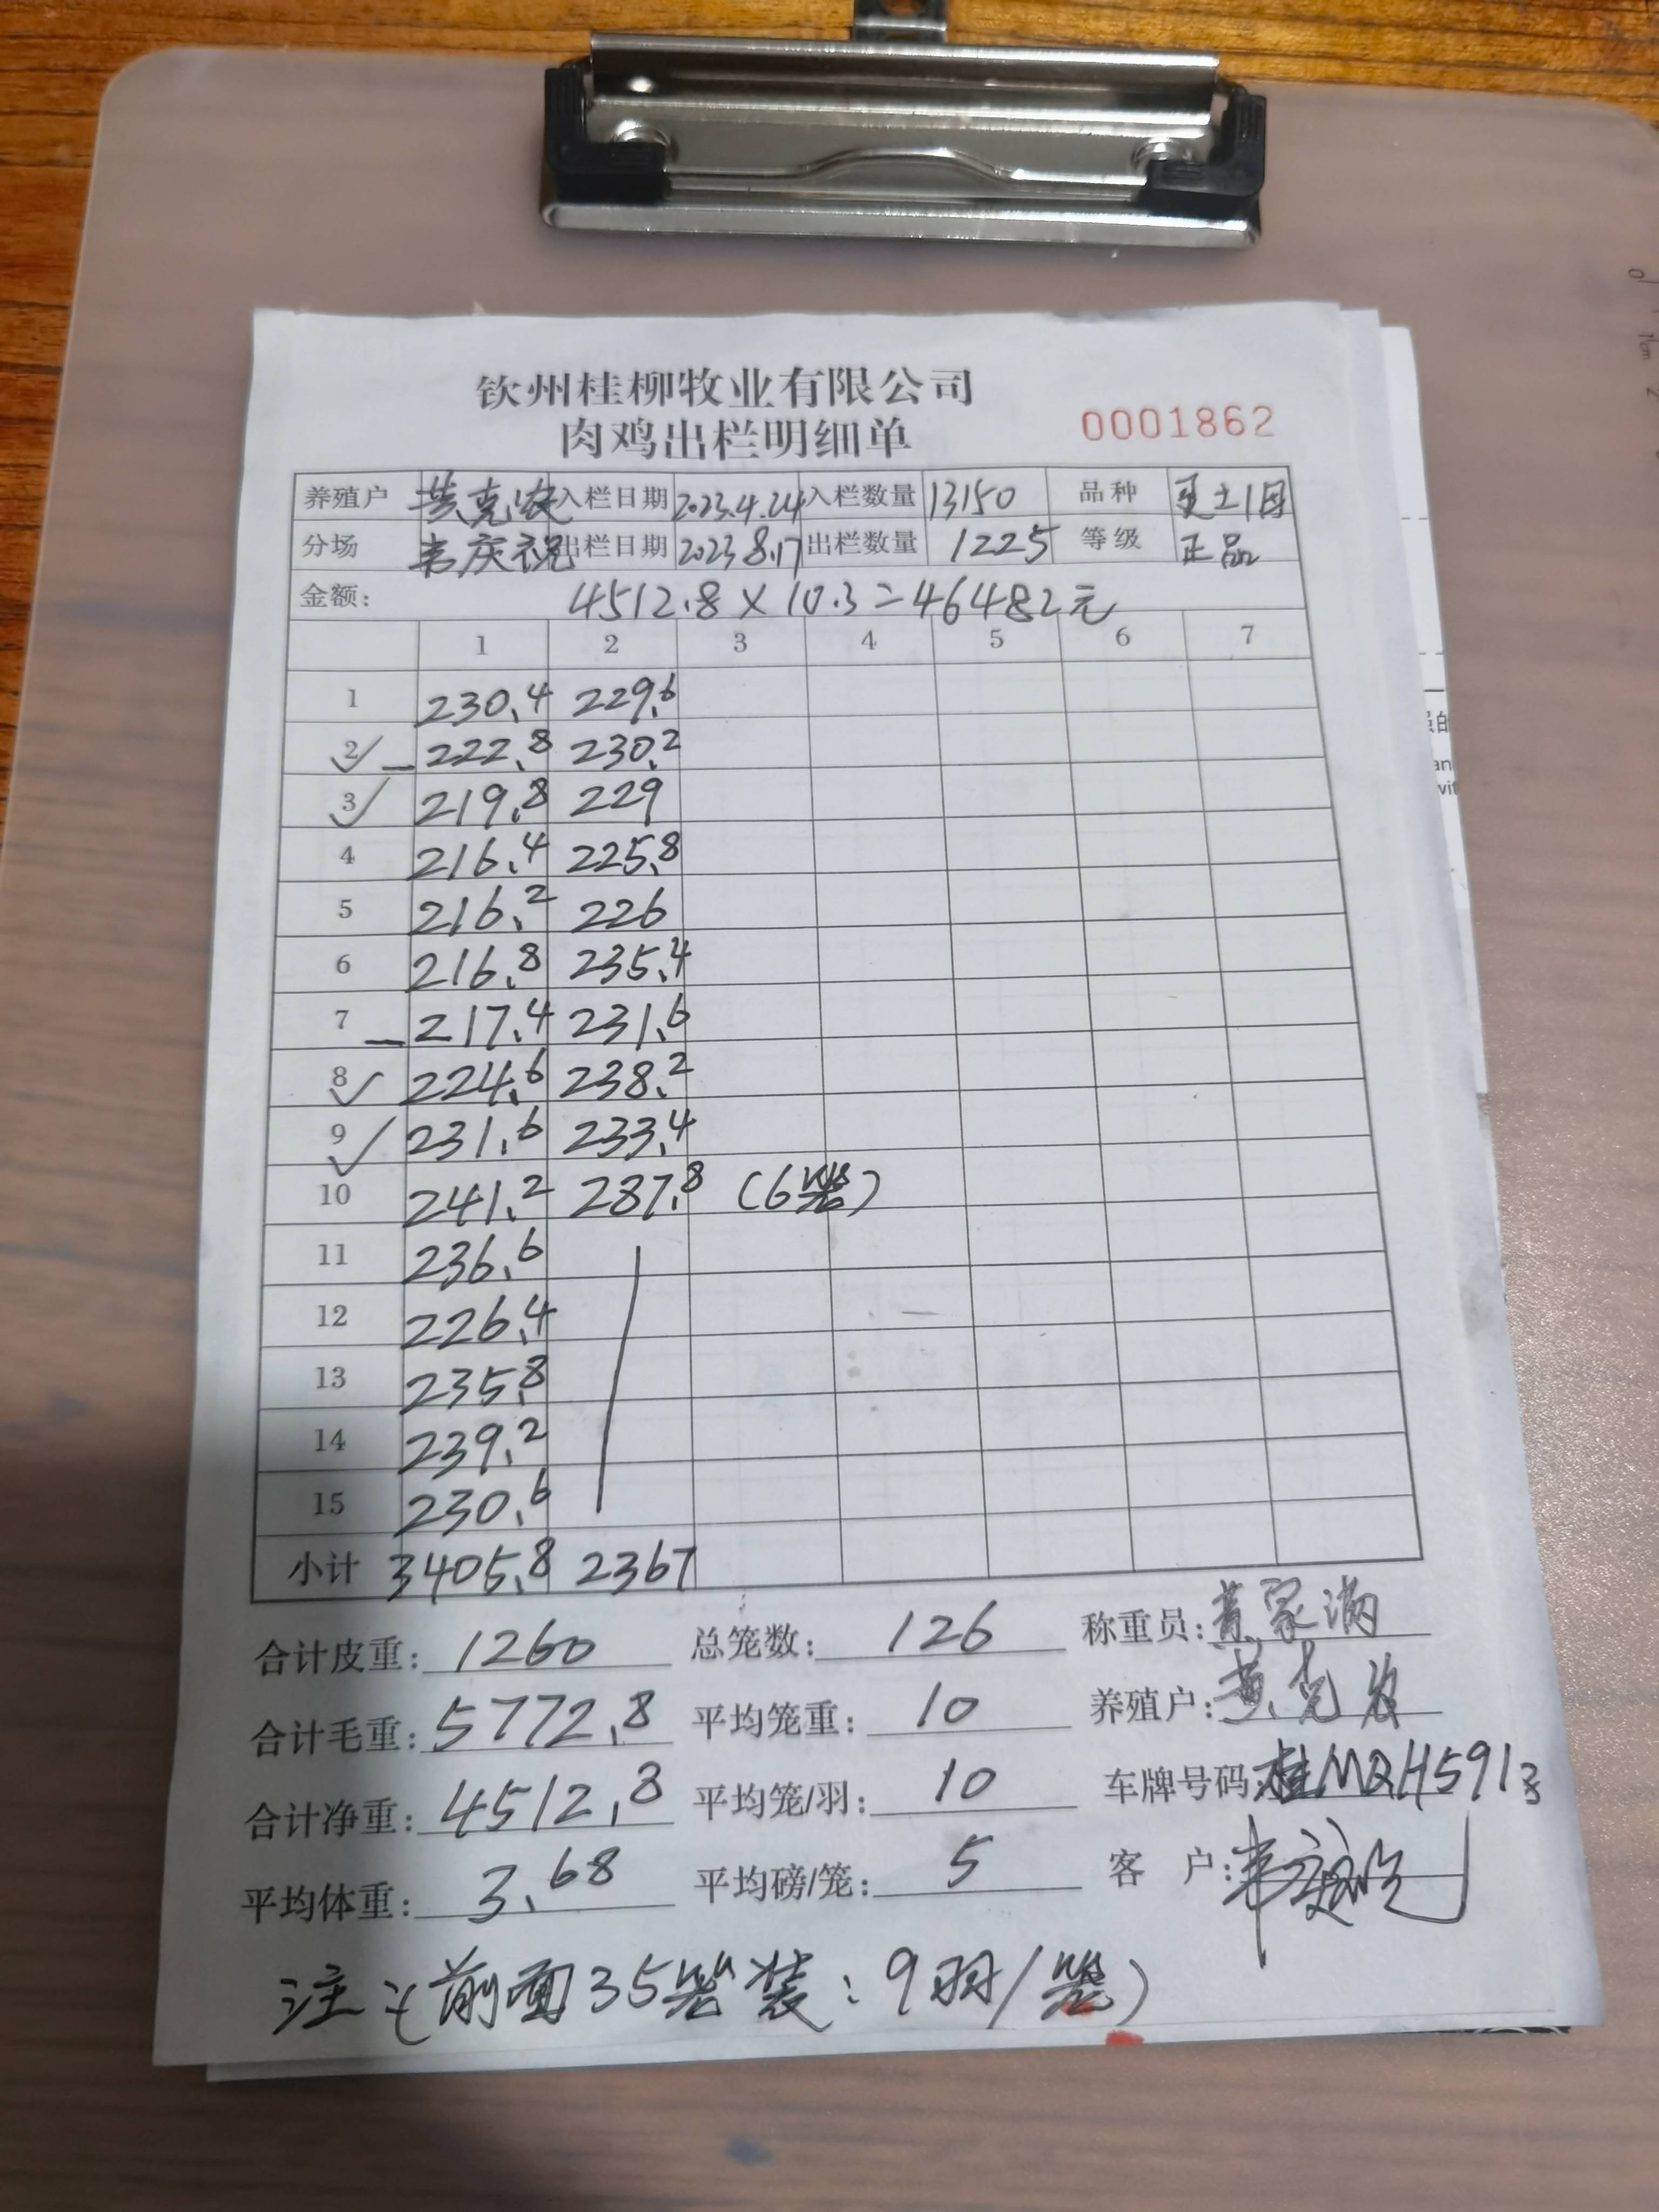 钦州桂柳牧业有限公司
肉鸡出栏明细单 0001862
养殖户 黄克农 入栏日期 2023.4.24 入栏数量 13150 品种 土1母
分场 韦庆祝 出栏日期 2023.8.17 出栏数量 1225 等级 正品
金额: 4512.8×10.3=46482元
1 2 3 4 5 6 7
1 230.4 229.6
2 222.8 230.2
3 219.8 229
4 216.4 225.8
5 216.2 226
6 216.8 235.4
7 217.4 231.6
8 224.6 238.2
9 231.6 233.4
10 241.2 287.8 (6笼)
11 236.6
12 226.4
13 235.8
14 239.2
15 230.6
小计 3405.8 2367
合计皮重: 1260 总笼数: 126 称重员: 黄家满
合计毛重: 5772.8 平均笼重: 10 养殖户: 黄克农
合计净重: 4512.8 平均笼/羽: 10 车牌号码: 桂MQH5913
平均体重: 3.68 平均磅/笼: 5 客户:
注:(前面35笼装:9羽/笼)